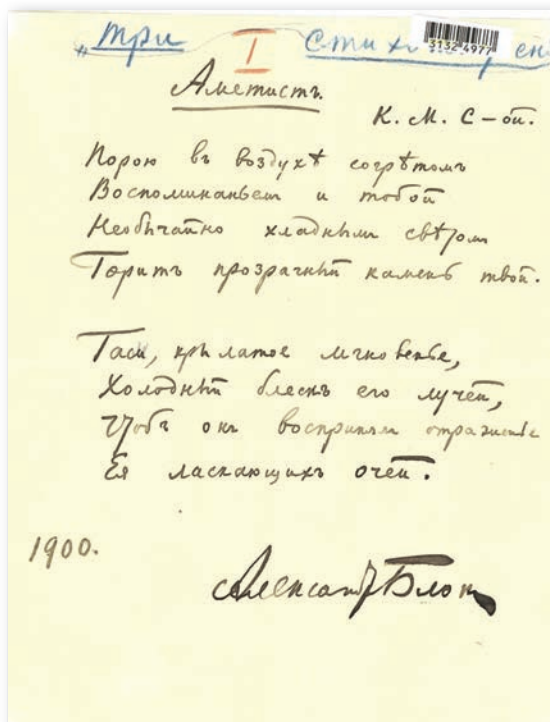 „три I стихотворен
31324977
Аметистъ.
К. М. С–ой.
Порою въ воздухѣ согрѣтомъ
Воспоминаньем и тобой
Необычайно хладным свѣтом
Горитъ прозрачный камень твой.
Гаси, крылатое мгновенье,
Холодный блескъ его лучей,
Чтобъ они восприняли отраженье
Ея ласкающихъ очей.
1900.
Александр Блок